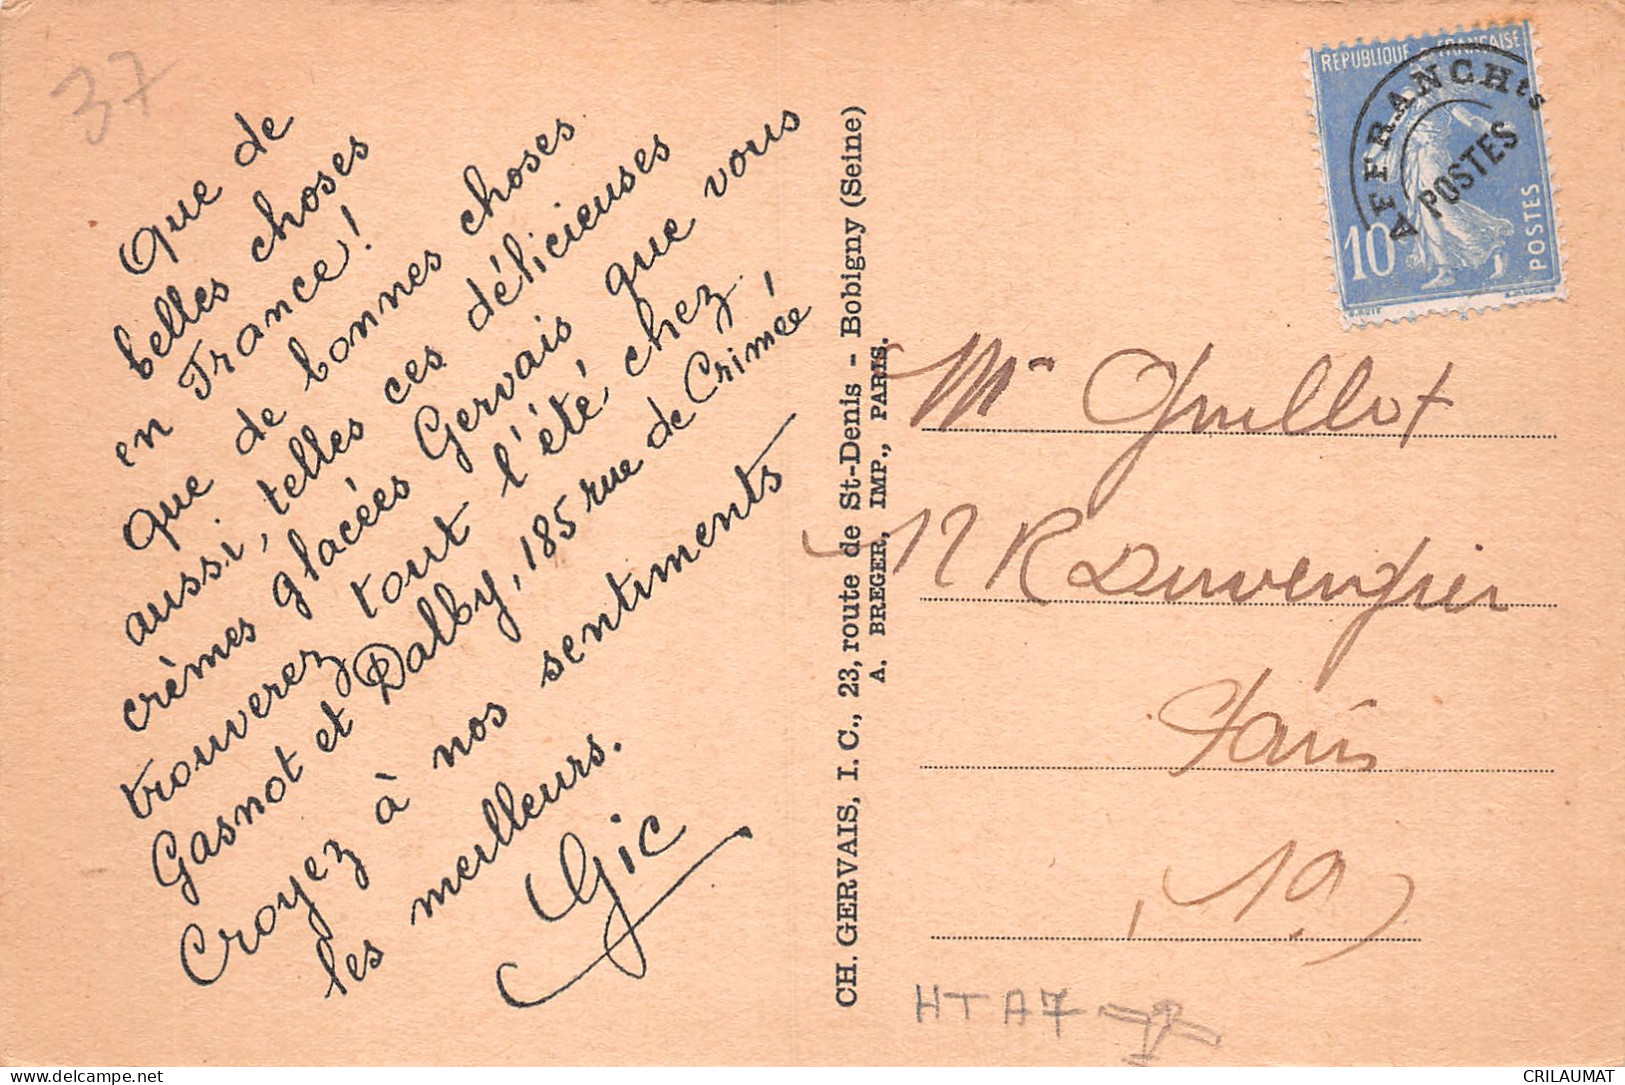 37
Que de
belles choses
en France !
Que de bonnes choses
aussi, telles ces délicieuses
crèmes glacées Gervais que vous
trouverez tout l'été, chez
Gasnot et Dalby, 185 rue de Crimée !
Croyez à nos sentiments
les meilleurs.
Gic
CH. GERVAIS, I. C., 23, route de St-Denis - Bobigny (Seine)
A. BREGER, IMP., PARIS.
REPUBLIQUE FRANÇAISE
AFFRANCHts
POSTES
10
POSTES
Mr Guillot
12 R Duvergier
Paris
(19)
HT A7
CRILAUMAT